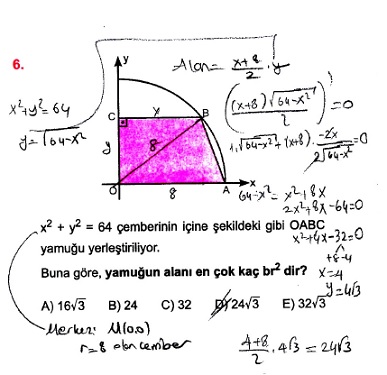 6.
y
Alan = x+8/2 · y
x²+y²=64
y=√64-x²
((x+8)√64-x²/2)' = 0
1·√64-x² + (x+8)· -2x/2√64-x² = 0
C x B
y 8
O 8 A x
64-x² = x²+8x
2x²+8x-64=0
x²+4x-32=0
+8 -4
x=4
y=4√3
x² + y² = 64 çemberinin içine şekildeki gibi OABC
yamuğu yerleştiriliyor.
Buna göre, yamuğun alanı en çok kaç br² dir?
A) 16√3 B) 24 C) 32 D) 24√3 E) 32√3
Merkezi M(0,0)
r=8 olan çember
4+8/2 · 4√3 = 24√3